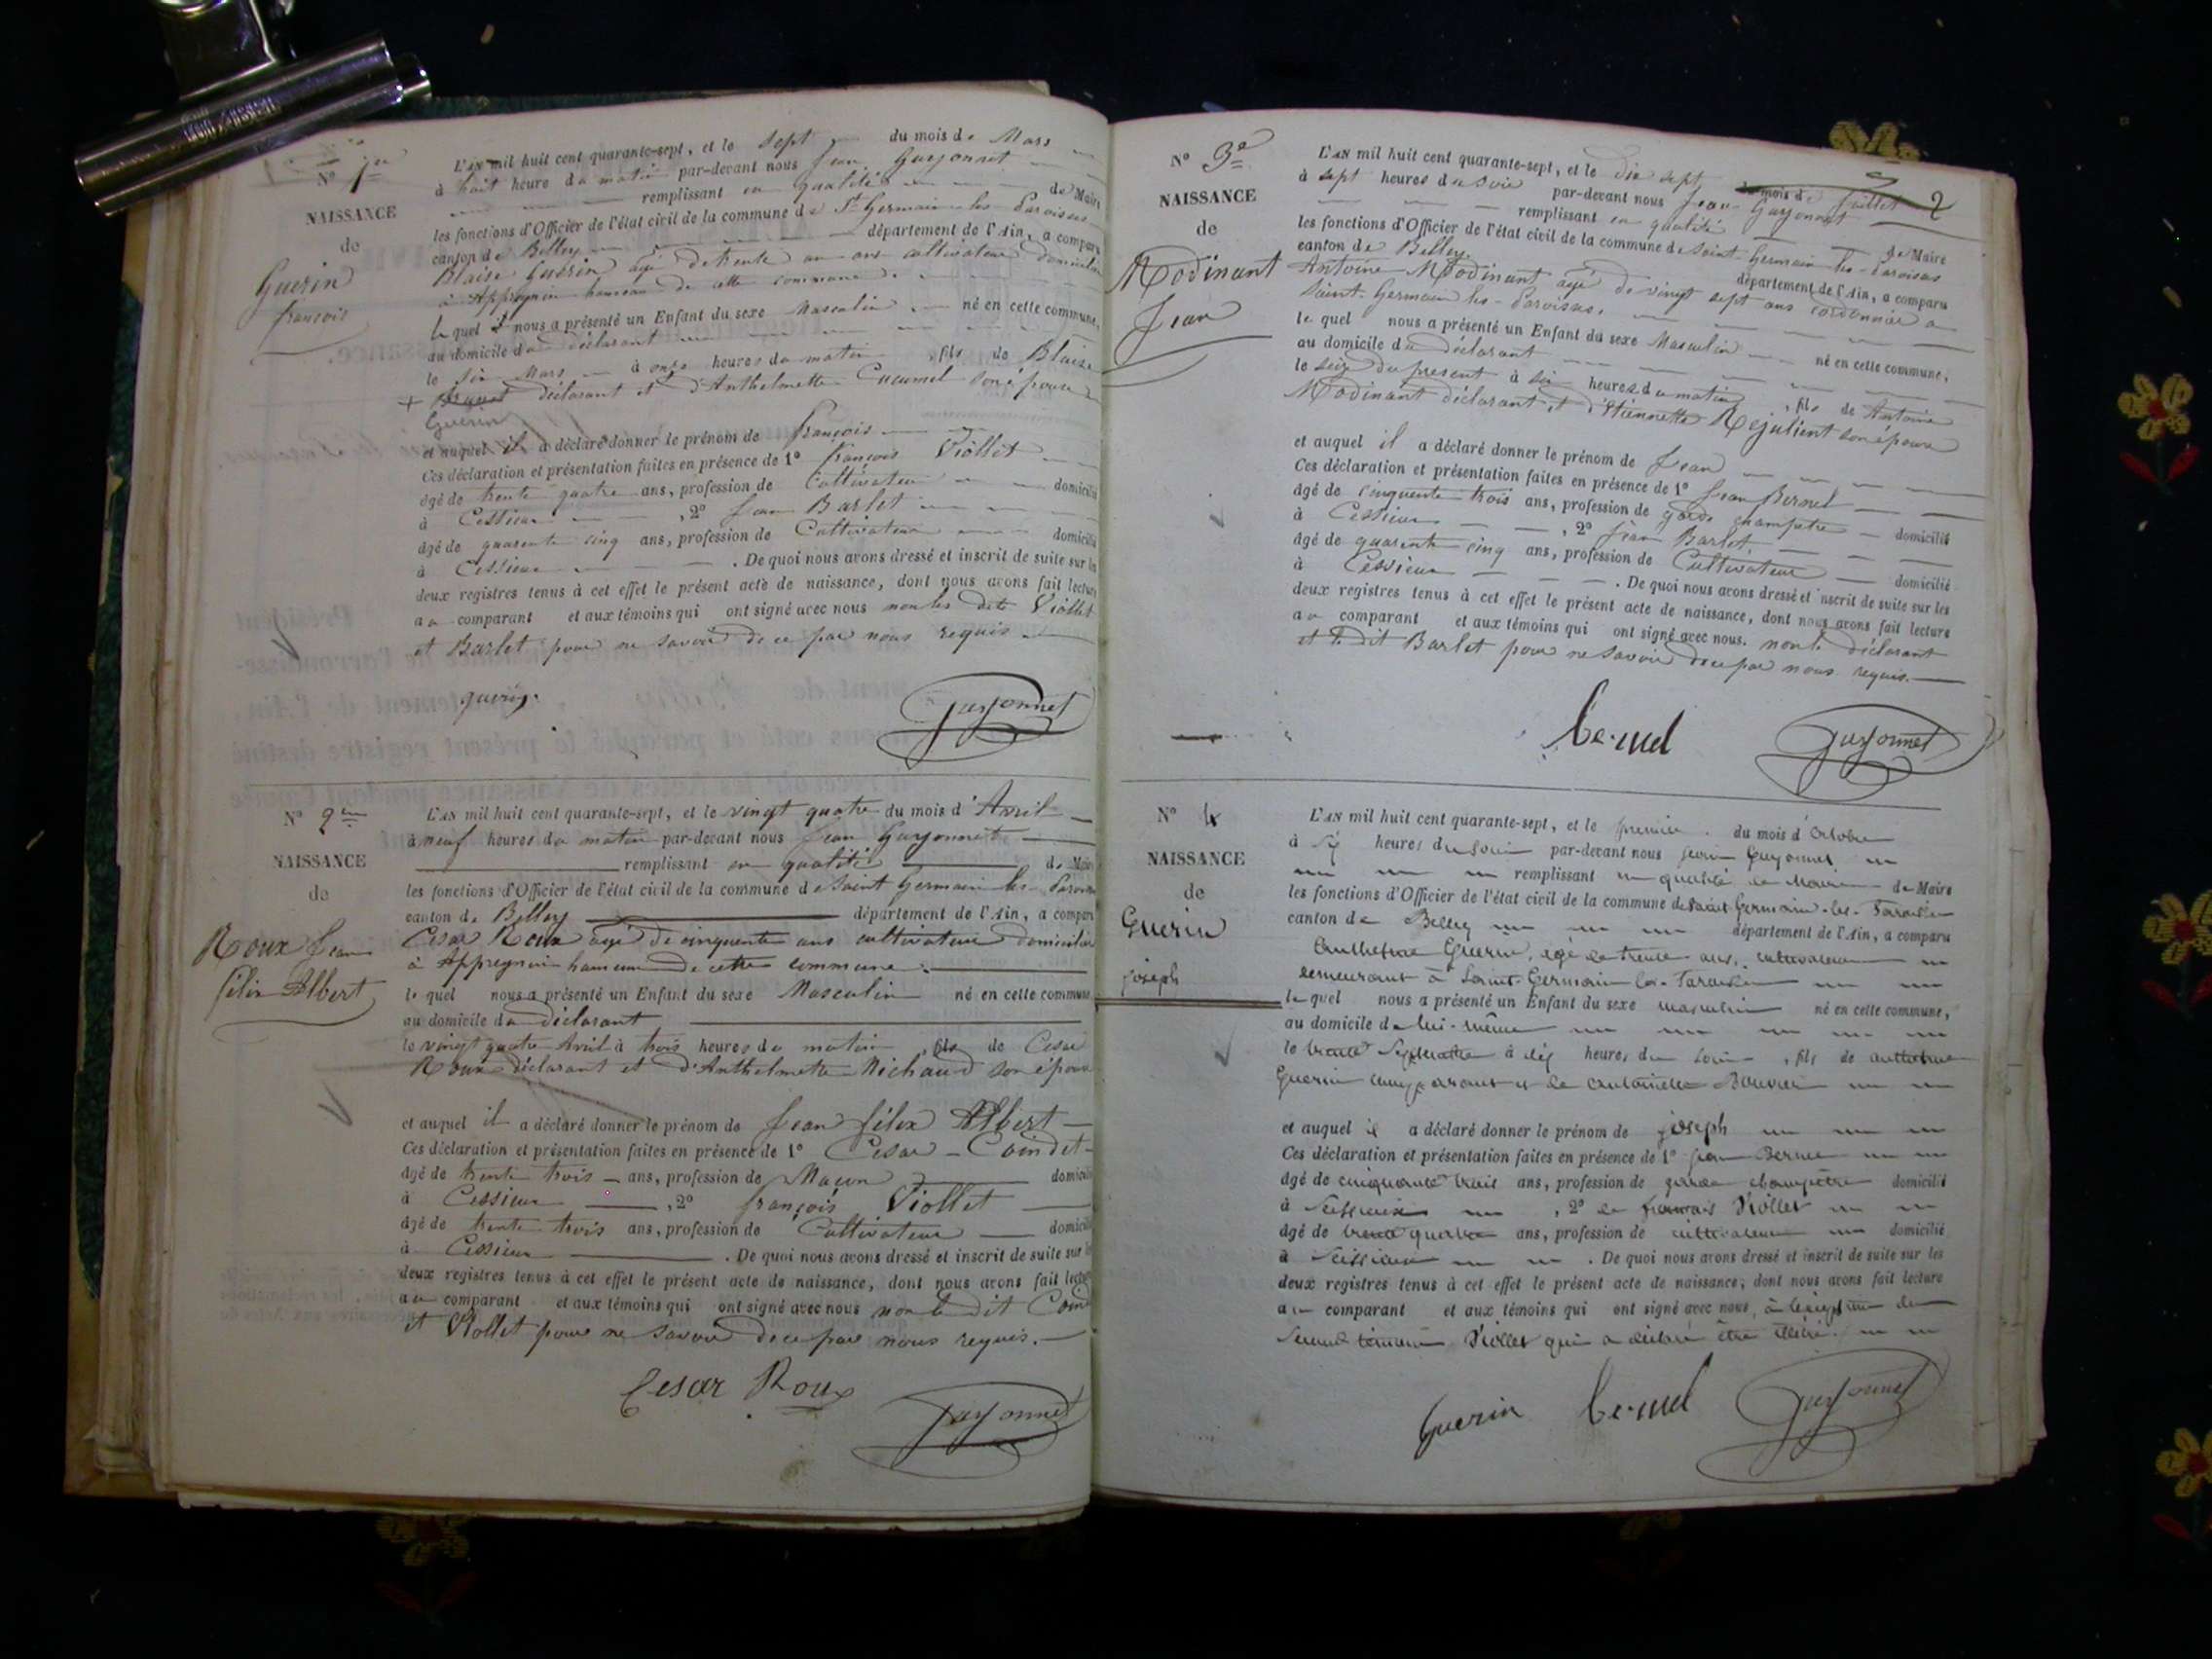 N° 1er
NAISSANCE
de
Guerin
françois
L'AN mil huit cent quarante-sept, et le sept du mois de Mars
à huit heure du matin par-devant nous Jean Guyonnet
remplissant en qualité de Maire
les fonctions d'Officier de l'état civil de la commune de St Germain les Paroisses
canton de Belley département de l'Ain, a comparu
Blaise Guérin agé de trente un ans cultivateur domicilié
à Appregnin hameau de cette commune
le quel nous a présenté un Enfant du sexe Masculin né en cette commune,
au domicile du déclarant
le six Mars à onze heures du matin , fils de Blaise
+ déclarant et d'Anthelmette Cucumel son épouse
Guerin
et auquel il a déclaré donner le prénom de françois
Ces déclaration et présentation faites en présence de 1° françois Viollet
âgé de trente quatre ans, profession de Cultivateur domicilié
à Cessieux , 2° Jean Barlet
âgé de quarente cinq ans, profession de Cultivateur domicilié
à Cessieux . De quoi nous avons dressé et inscrit de suite sur les
deux registres tenus à cet effet le présent acte de naissance, dont nous avons fait lecture
au comparant et aux témoins qui ont signé avec nous non les dits Viollet
et Barlet pour ne savoir de ce par nous requis
guerin.
Guyonnet
N° 2em
NAISSANCE
de
Roux Jean
félix Albert
L'AN mil huit cent quarante-sept, et le vingt quatre du mois d'Avril
à neuf heures du matin par-devant nous Jean Guyonnet
remplissant en qualité de Maire
les fonctions d'Officier de l'état civil de la commune de Saint Germain les Paroisses
canton de Belley département de l'Ain, a comparu
Cesar Roux agé de cinquente ans cultivateur domicilié
à Appregnin hameau de cette commune.
le quel nous a présenté un Enfant du sexe Masculin né en cette commune
au domicile du déclarant
le vingt quatre Avril à trois heures du matin , fils de Cesar
Roux déclarant et d'Anthelmette Michaud son épouse
et auquel il a déclaré donner le prénom de Jean félix Albert
Ces déclaration et présentation faites en présence de 1° Cesar Coindet
âgé de trente trois ans, profession de Maçon domicilié
à Cessieux , 2° françois Viollet
âgé de trente trois ans, profession de Cultivateur domicilié
à Cessieux . De quoi nous avons dressé et inscrit de suite sur les
deux registres tenus à cet effet le présent acte de naissance, dont nous avons fait lecture
au comparant et aux témoins qui ont signé avec nous non le dit Coindet
et Viollet pour ne savoir de ce par nous requis.
Cesar Roux
Guyonnet
2
N° 3e
NAISSANCE
de
Modinant
Jean
L'AN mil huit cent quarante-sept, et le dix sept du mois de Juillet
à sept heures du soir par-devant nous Jean Guyonnet
remplissant en qualité de Maire
les fonctions d'Officier de l'état civil de la commune de Saint Germain les Paroisses
canton de Belley département de l'Ain, a comparu
Antoine Modinant agé de vingt sept ans cordonnier a
Saint-Germain les-Paroisses.
le quel nous a présenté un Enfant du sexe Masculin né en cette commune,
au domicile du déclarant
le seize du present à six heures du matin , fils de Antoine
Modinant déclarant et d'étiennette Rejulient son épouse
et auquel il a déclaré donner le prénom de Jean
Ces déclaration et présentation faites en présence de 1° Jean Bernel
âgé de cinquente trois ans, profession de garde champetre domicilié
à Cessieux , 2° Jean Barlet
âgé de quarente cinq ans, profession de Cultivateur domicilié
à Cessieux . De quoi nous avons dressé et inscrit de suite sur les
deux registres tenus à cet effet le présent acte de naissance, dont nous avons fait lecture
au comparant et aux témoins qui ont signé avec nous. non le déclarant
et le dit Barlet pour ne savoir de ce par nous requis.
bernel
Guyonnet
N° 4
NAISSANCE
de
Guerin
joseph
L'AN mil huit cent quarante-sept, et le premier du mois d'octobre
à six heures du soir par-devant nous jean Guyonnet
remplissant en qualité de Maire de Maire
les fonctions d'Officier de l'état civil de la commune de saint Germain-les-Paroisses
canton de Belley département de l'Ain, a comparu
Anthelme Guerin, agé de trente ans, cultivateur
demeurant à Saint-Germain les-Paroisses
le quel nous a présenté un Enfant du sexe masculin né en cette commune,
au domicile de lui-même
le trente Septembre à dix heures du soir , fils de anthelme
Guerin comparant et de Bouvier
et auquel il a déclaré donner le prénom de joseph
Ces déclaration et présentation faites en présence de 1° jean Bernel
âgé de cinquante trois ans, profession de garde champêtre domicilié
à Seissieux , 2° de françois Viollet
âgé de trente quatre ans, profession de cultivateur domicilié
à Seissieux . De quoi nous avons dressé et inscrit de suite sur les
deux registres tenus à cet effet le présent acte de naissance, dont nous avons fait lecture
au comparant et aux témoins qui ont signé avec nous, à l'exception du
second témoin Viollet qui a déclaré être illétré.
Guerin
bernel
Guyonnet